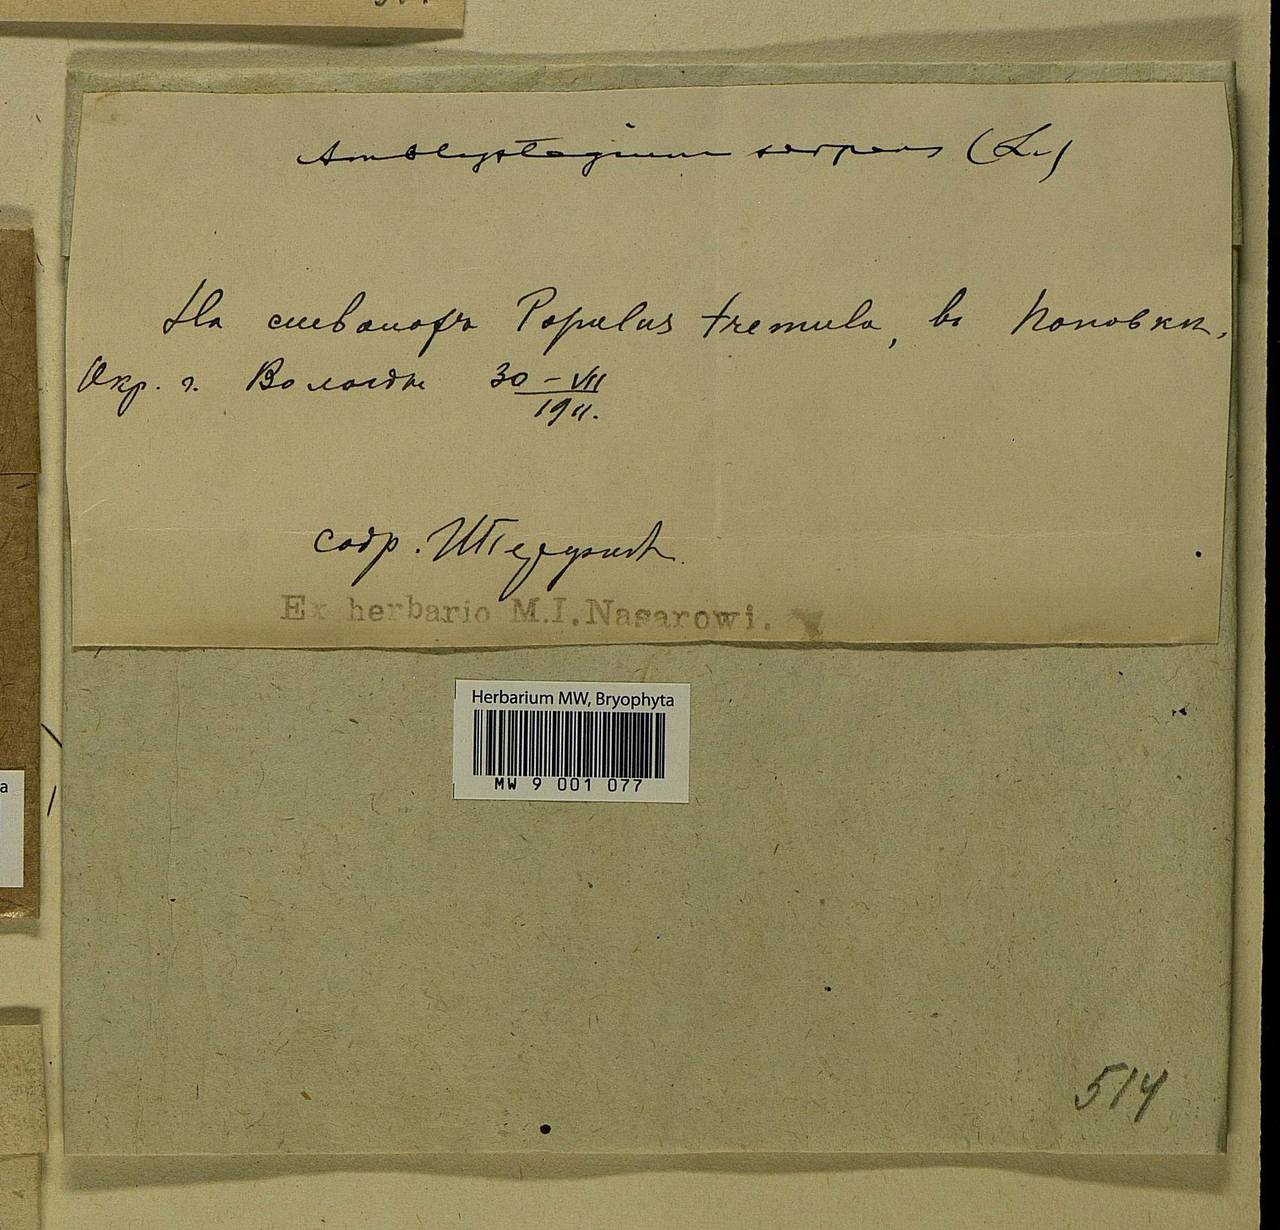 Amblystegium serpens (L.)
На стволахъ Populus tremula, в Поповки,
Окр. г. Вологды 30-VII
1911.
собр.
Ex herbario M.I.Nasarowi.
Herbarium MW, Bryophyta
MW 9 001 077
514